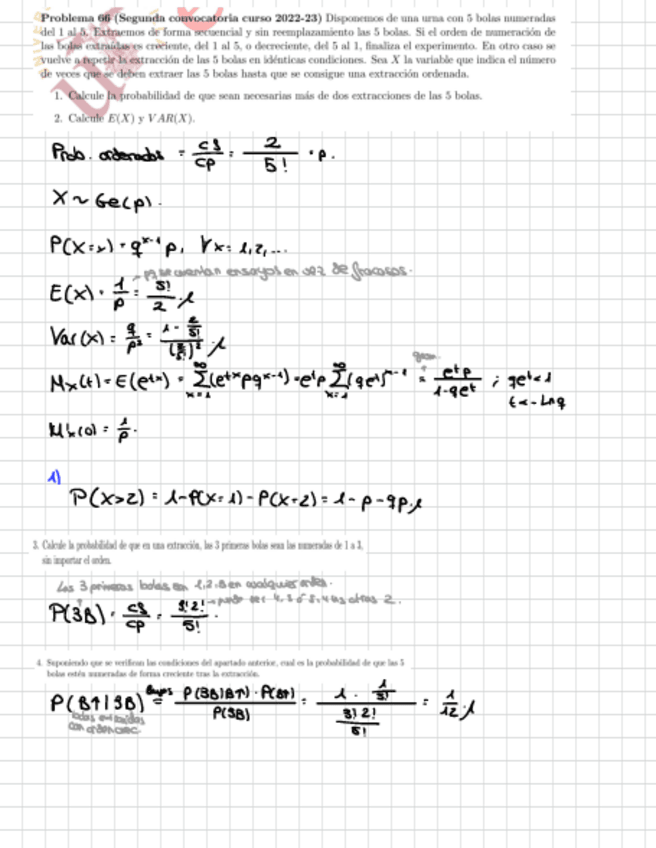 Problema 66 (Segunda convocatoria curso 2022-23) Disponemos de una urna con 5 bolas numeradas
del 1 al 5. Extraemos de forma secuencial y sin reemplazamiento las 5 bolas. Si el orden de numeración de
las bolas extraídas es creciente, del 1 al 5, o decreciente, del 5 al 1, finaliza el experimento. En otro caso se
vuelve a repetir la extracción de las 5 bolas en idénticas condiciones. Sea X la variable que indica el número
de veces que se deben extraer las 5 bolas hasta que se consigue una extracción ordenada.
1. Calcule la probabilidad de que sean necesarias más de dos extracciones de las 5 bolas.
2. Calcule E(X) y VAR(X).
Prob. ordenadas = CF/CP = 2/5! = p.
X ~ Ge(p).
P(X=x) = q^(x-1) p, ∀x = 1,2,...
ya se cuentan ensayos en vez de fracasos.
E(X) = 1/p = 5!/2
Var(X) = q/p² = (1 - 2/5!)/(2/5!)²
Mx(t) = E(e^(tx)) = Σ(e^(tx) p q^(x-1)) = e^t p Σ(q e^t)^(x-1) = e^t p/(1-q e^t) ; q e^t < 1
geom.
t < -Ln q
M'x(0) = 1/p.
1)
P(X>2) = 1-P(X=1)-P(X=2) = 1-p-qp
3. Calcule la probabilidad de que en una extracción, las 3 primeras bolas sean las numeradas de 1 a 3,
sin importar el orden.
Las 3 primeras bolas en 1,2,3 en cualquier orden.
P(3B) = CF/CP = 3!2!/5!
puede ser 4,5 ó 5,4 las otras 2.
4. Suponiendo que se verifican las condiciones del apartado anterior, cual es la probabilidad de que las 5
bolas estén numeradas de forma creciente tras la extracción.
P(B↑|3B) Bayes = P(3B|B↑) · P(B↑)/P(3B) = (1 · 1/5!)/(3!2!/5!) = 1/12
todas
con orden crec.